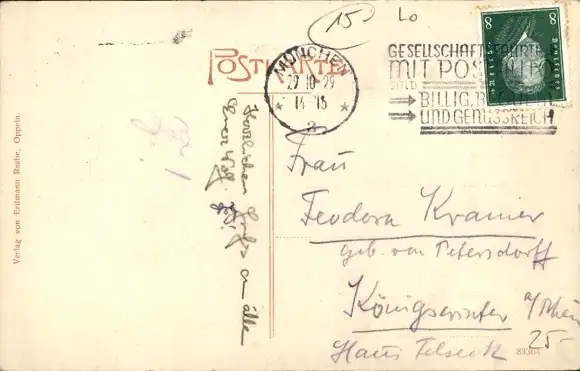 15
Lo
POSTKARTE
MÜNCHEN
27 10-29
14-15
* 2 *
8
8
GESELLSCHAFTSFAHRTEN
MIT POSTAUTO
SIND
BILLIG,
UND GENUSSREICH
Herzlichen Gruß an alle
Euer
Verlag von Erdmann Raabe, Oppeln.
Frau
Feodora Kramer
geb. von Petersdorff
Königswinter a/Rhein
Haus Felseck
25-
83364